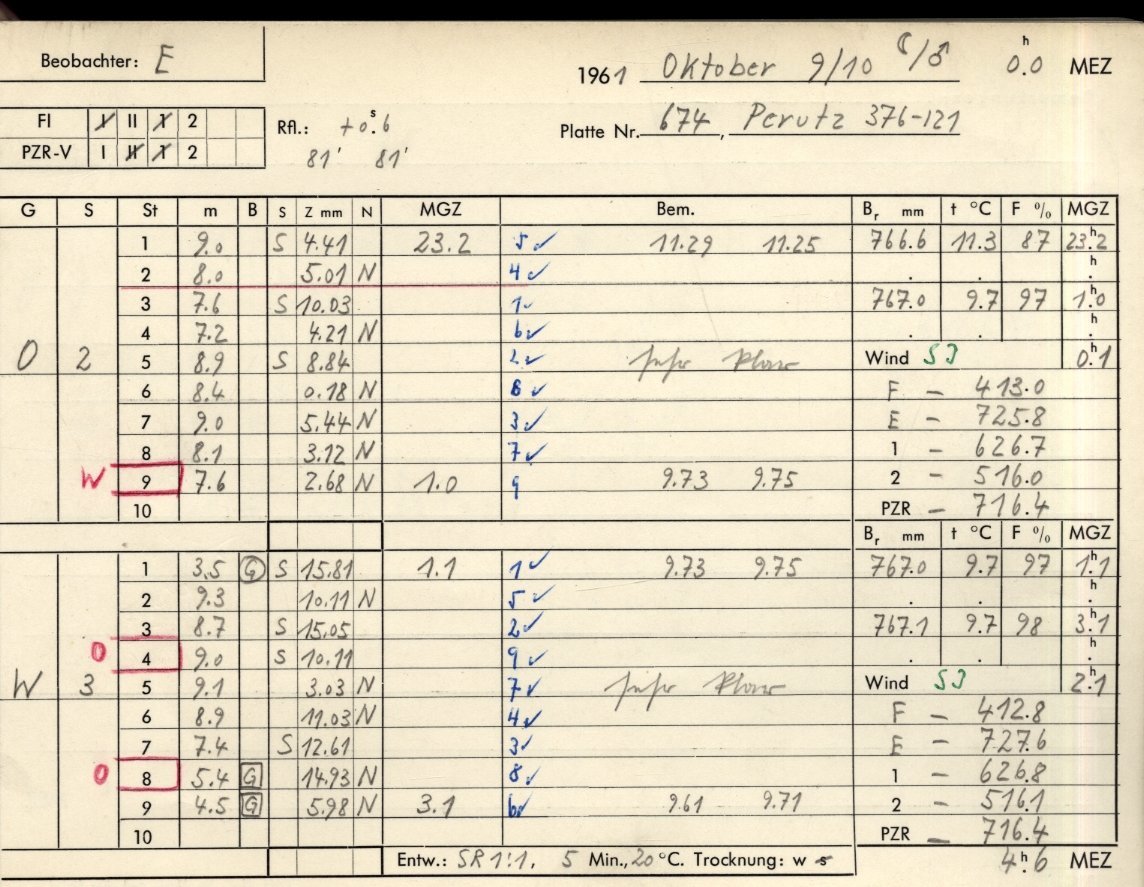 Beobachter: E
1961 Oktober 9/10 ☾/♂ 0.0 h MEZ
FI I II 1 2
PZR-V I II 1 2
Rfl.: +0.6 s
81' 81'
Platte Nr. 674, Perutz 376-121
G S St m B S Z mm N MGZ Bem. Br mm t °C F % MGZ
1 9.0 S 4.41 23.2 5 ✓ 11.29 11.25 766.6 11.3 87 23.2 h
2 8.0 5.01 N 4 ✓ . . h .
3 7.6 S 10.03 1 ✓ 767.0 9.7 97 1.0 h
4 7.2 4.21 N 6 ✓ . . h .
O 2 5 8.9 S 8.84 2 ✓ sehr klar Wind SJ 0.1 h
6 8.4 0.18 N 8 ✓ F – 413.0
7 9.0 5.44 N 3 ✓ E – 725.8
8 8.1 3.12 N 7 ✓ 1 – 626.7
W 9 7.6 2.68 N 1.0 9 9.73 9.75 2 – 516.0
10 PZR – 716.4
Br mm t °C F % MGZ
1 3.5 G S 15.81 1.1 1 ✓ 9.73 9.75 767.0 9.7 97 1.1 h
2 9.3 10.11 N 5 ✓ . . .
3 8.7 S 15.05 2 ✓ 767.1 9.7 98 3.1 h
O 4 9.0 S 10.11 9 ✓ . . h .
W 3 5 9.1 3.03 N 7 ✓ sehr klar Wind SJ 2.1 h
6 8.9 11.03 N 4 ✓ F – 412.8
7 7.4 S 12.61 3 ✓ E – 727.6
O 8 5.4 G 14.93 N 8 ✓ 1 – 626.8
9 4.5 G 5.98 N 3.1 6 ✓ 9.61 9.71 2 – 516.1
10 PZR – 716.4
Entw.: SR 1:1, 5 Min., 20 °C. Trocknung: w s 4.6 h MEZ